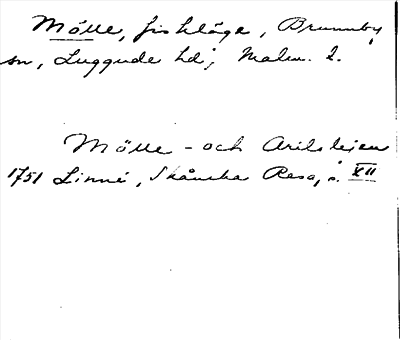 Mölle, fiskläge, Brunnby
sn, Luggude hd, Malm. l.
Mölle - och Arilslejen
1751 Linné, Skånska Resa, s. XII